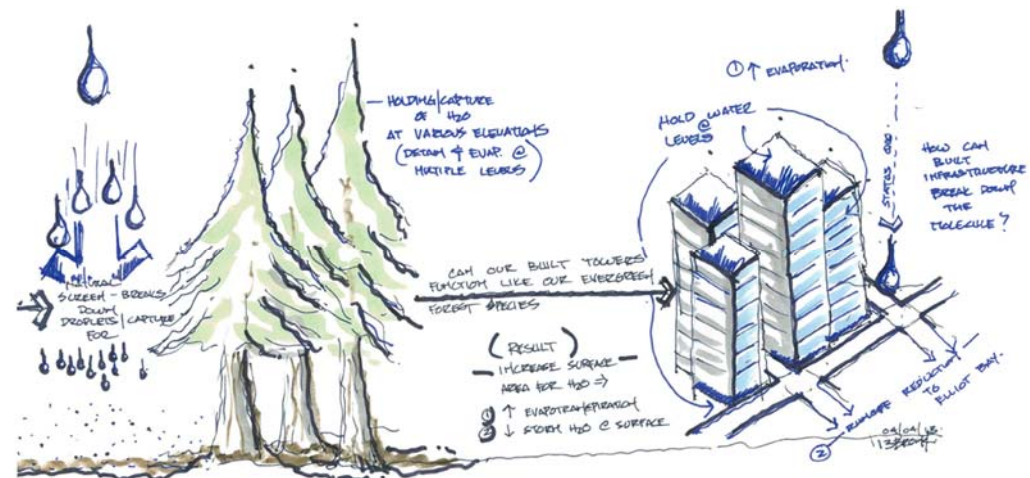 NATURAL
SCREEN - BREAKS
DOWN
DROPLETS/CAPTURE
FOR
HOLDING/CAPTURE
OF H2O
AT VARIOUS ELEVATIONS
(DETAIN & EVAP. @
MULTIPLE LEVELS)
CAN OUR BUILT TOWERS
FUNCTION LIKE OUR EVERGREEN
FOREST SPECIES
(RESULT)
INCREASE SURFACE
AREA FOR H2O ⇒
① ↑ EVAPOTRANSPIRATION
② ↓ STORM H2O @ SURFACE
① ↑ EVAPORATION.
HOLD WATER
@
LEVELS
STATUS QUO
HOW CAN
BUILT
INFRASTRUCTURE
BREAK DOWN
THE
MOLECULE?
② RUNOFF REDUCTION
TO
ELLIOT BAY.